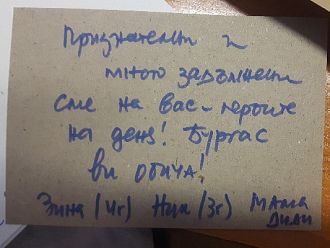 Признателни и
много задължени
сме на Вас - героите
на деня! Бургас
ви обича!
Зина (4г) Ники (3г) Мама
Диди